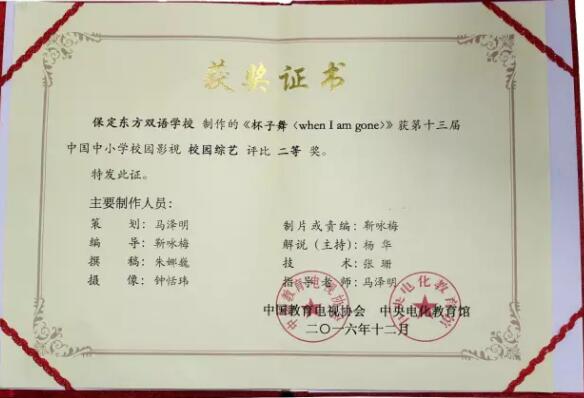 获奖证书
保定东方双语学校 制作的《杯子舞〈when I am gone〉》获第十三届
中国中小学校园影视 校园综艺 评比 二等 奖。
特发此证。
主要制作人员：
策划：马泽明 制片或责编：靳咏梅
编导：靳咏梅 解说（主持）：杨华
撰稿：朱娜巍 技术：张珊
摄像：钟恬玮 指导老师：马泽明
中国教育电视协会 中央电化教育馆
二〇一六年十二月
中国教育电视协会
中央电化教育馆